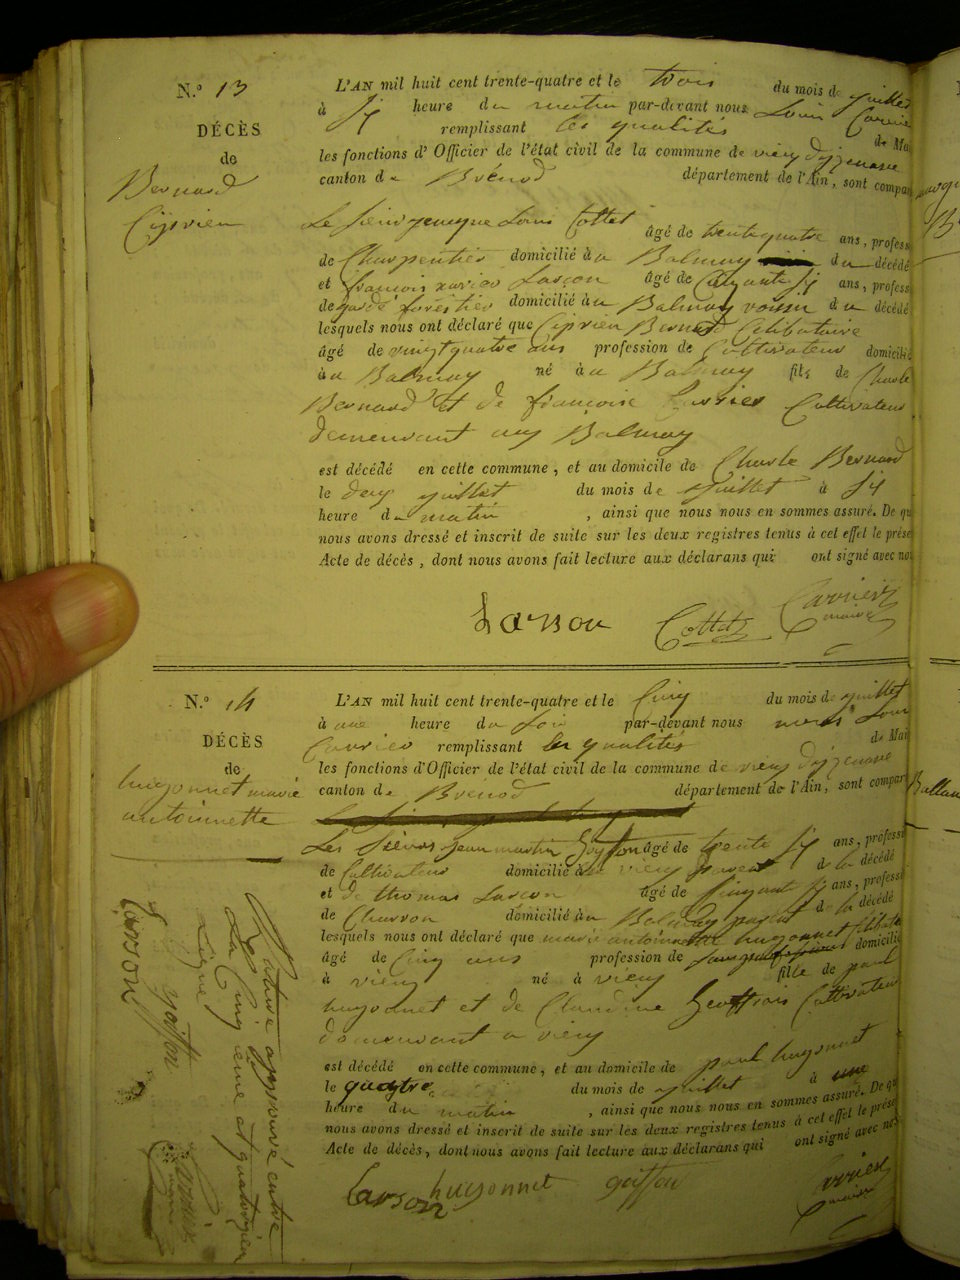 N.º 13
DÉCÈS
de
Bernard
Ciprien
L'AN mil huit cent trente-quatre et le trois du mois de juillet
à six heure du matin par-devant nous Louis Carrier
remplissant les qualités de Mai
les fonctions d'Officier de l'état civil de la commune de vieu d'izenave
canton de Brénod département de l'Ain, sont compar
Le Sieur Louis Cottet âgé de trente quatre ans, profess
de Charpentier domicilié à au Balmay du décédé
et françois xavier Larçon âgé de ans, profess
de garde forestier domicilié à au Balmay voisin du décédé
lesquels nous ont déclaré que Ciprien Bernard Célibataire
âgé de vingt quatre ans profession de Cultivateur domicilié
à au Balmay né à au Balmay fils de Charle
Bernard et de françoise Carrier Cultivateur
demeurant au Balmay
est décédé en cette commune, et au domicile de Charle Bernard
le deux juillet du mois de juillet à six
heure du matin, ainsi que nous nous en sommes assuré. De qu
nous avons dressé et inscrit de suite sur les deux registres tenus à cet effet le prése
Acte de décès, dont nous avons fait lecture aux déclarans qui ont signé avec nou
Larson Cottet Carrier
maire
N.º 14
DÉCÈS
de
hugonnet marie
antoinette
L'AN mil huit cent trente-quatre et le Cinq du mois de juillet
à une heure du soir par-devant nous Louis
Carrier remplissant les qualités de Mai
les fonctions d'Officier de l'état civil de la commune de vieu d'izenave
canton de Brénod département de l'Ain, sont compar
Les Sieurs jean martin Goiffon âgé de trente six ans, profess
de Cultivateur domicilié à vieu de la décédé
et de thomas Larçon âgé de ans, profess
de Charron domicilié à au Balmay de la décédé
lesquels nous ont déclaré que marie antoinette hugonnet Célibatai
âgé de Cinq ans profession de domicilié
à vieu né à vieu fille de paul
hugonnet et de Claudine Geoffrais Cultivateur
demeurant a vieu
est décédé en cette commune, et au domicile de paul hugonnet
le quatre du mois de juillet à une
heure du matin, ainsi que nous nous en sommes assuré. De qu
nous avons dressé et inscrit de suite sur les deux registres tenus à cet effet le prése
Acte de décès, dont nous avons fait lecture aux déclarans qui ont signé avec nou
Larson hugonnet goiffon Carrier
maire
Rature approuvé entre
La Cinquieme et quatorzieme
Ligne
goiffon
Larson
Carrier
maire